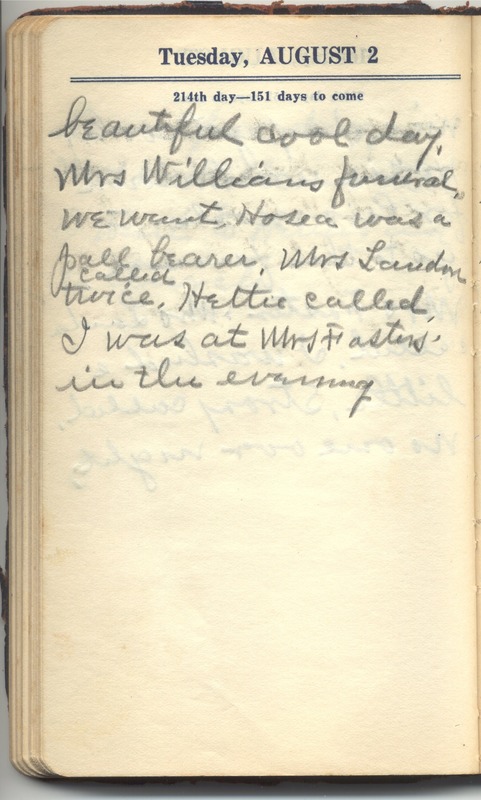 Tuesday, AUGUST 2
214th day—151 days to come
beautiful cool day.
Mrs Willians funeral,
we went. Hosea was a
pall bearer. Mrs Landon
called
twice. Hettie called,
I was at Mrs Fosters'
in the evening